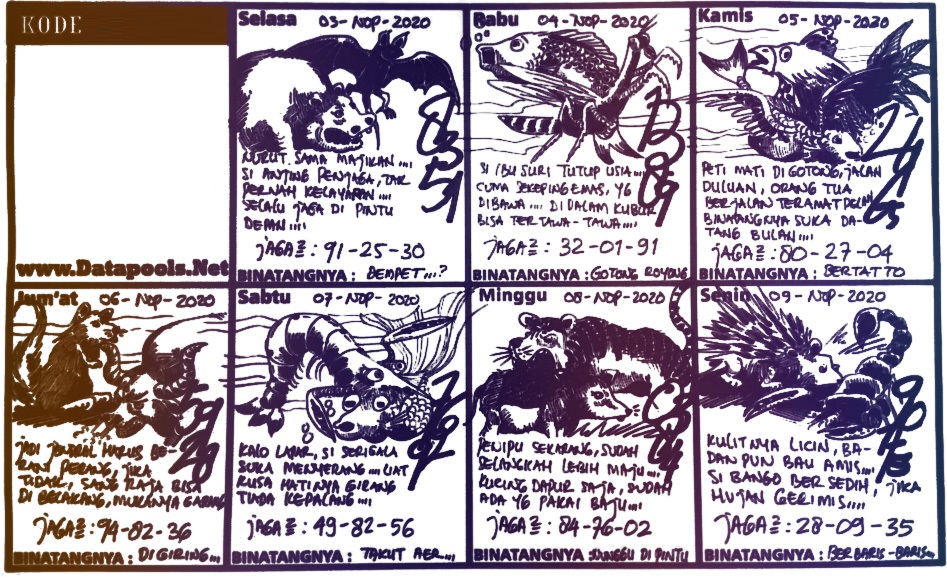 KODE
www.Datapools.Net
Selasa 03-NOP-2020
NURUT SAMA MAJIKAN ....
SI ANJING PENJAGA, TAK
PERNAH KELAYAPAN ....
SELALU JAGA DI PINTU
DEPAN ....
JAGA2 : 91-25-30
BINATANGNYA : DEMPET....?
Rabu 04-NOP-2020
SI IBU SURI TUTUP USIA ....
CUMA SEKEPING EMAS, YG
DIBAWA .... DI DALAM KUBUR
BISA TERTAWA-TAWA....
JAGA2 : 32-01-91
BINATANGNYA : GOTONG ROYONG
Kamis 05-NOP-2020
PETI MATI DI GOTONG, JALAN
DULUAN, ORANG TUA
BERJALAN TERAMAT PELAN
BINATANGNYA SUKA DA-
TANG BULAN ....
JAGA2 : 80-27-04
BINATANGNYA : BERTATTO
Jum'at 06-NOP-2020
JADI JENDRAL HARUS BE-
RANI PERANG, JIKA
TIDAK, SANG RAJA BISA
DI BELAKANG, MUKANYA GARANG
JAGA2 : 94-82-36
BINATANGNYA : DI GIRING....
Sabtu 07-NOP-2020
KALO LAPAR, SI SERIGALA
SUKA MENYERANG .... LIAT
RUSA HATINYA GIRANG
TIADA KEPALANG ....
JAGA2 : 49-82-56
BINATANGNYA : TAKUT AER....
Minggu 08-NOP-2020
PENIPU SEKARANG, SUDAH
SELANGKAH LEBIH MAJU....
KUCING DAPUR SAJA, SUDAH
ADA YG PAKAI BAJU....
JAGA2 : 84-76-02
BINATANGNYA : SUNGGU DI PINTU
Senin 09-NOP-2020
KULITNYA LICIN, BA-
DAN PUN BAU AMIS....
SI BANGO BERSEDIH, JIKA
HUJAN GERIMIS....
JAGA2 : 28-09-35
BINATANGNYA : BERBARIS-BARIS....